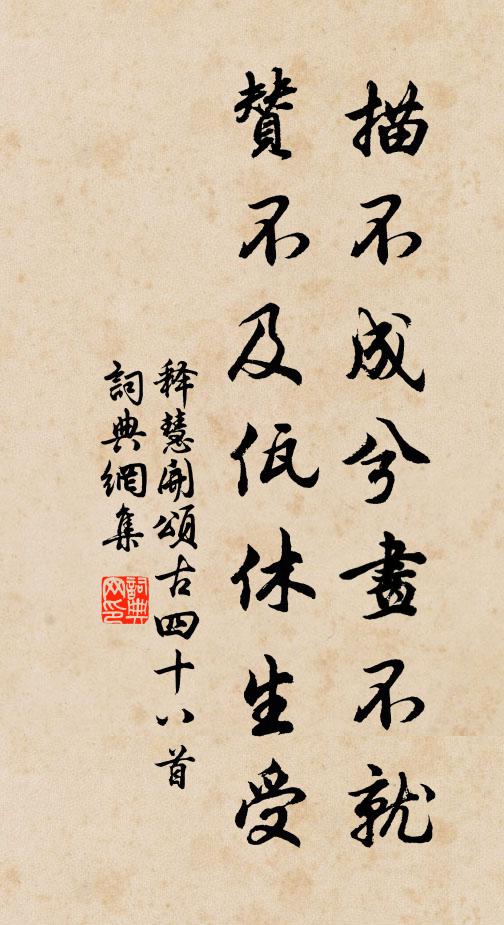 描不成兮畫不就
贊不及伍休生受
释慧開頌古四十八首
詞典網集
詞典
网印